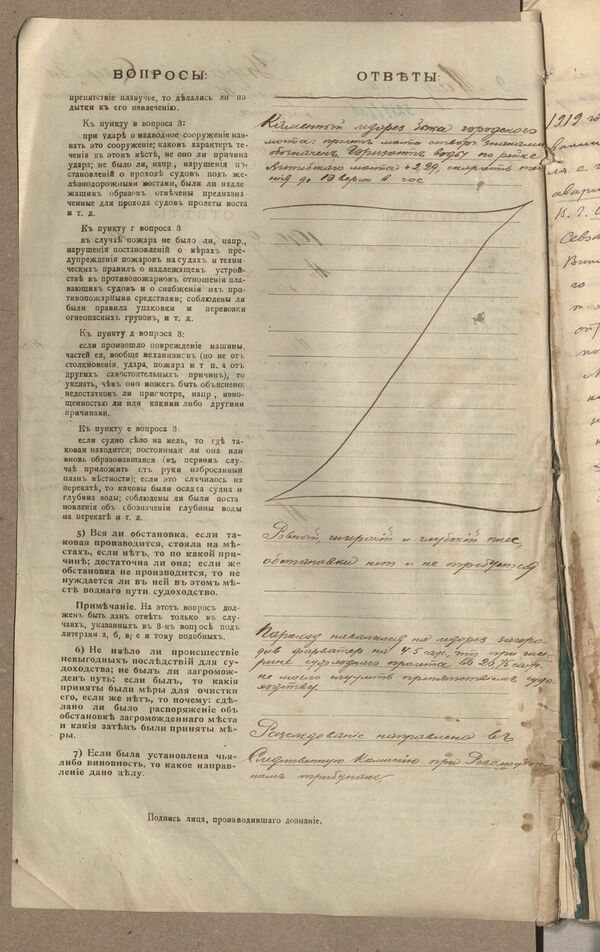 ВОПРОСЫ:
препятствіе плавучее, то дѣлались ли по
пытки къ его извлеченію.
Къ пункту в вопроса 3:
при ударѣ о надводное сооруженіе наз-
вать это сооруженіе; каковъ характеръ те-
ченія въ этомъ мѣстѣ, не оно ли причина
удара; не было ли, напр., нарушенія по-
становленій о проходѣ судовъ подъ же-
лѣзнодорожными мостами, были ли надле
жащимъ образомъ отмѣчены предназна
ченные для прохода судовъ пролеты моста
и т. д.
Къ пункту г вопроса 3
въ случаѣ пожара не было ли, напр.,
нарушенія постановленій о мѣрахъ пре-
дупрежденія пожаровъ на судахъ и техни-
ческихъ правилъ о надлежащемъ устрой-
ствѣ въ противопожарномъ отношеніи пла-
вающихъ судовъ и о снабженіи ихъ про-
тивопожарными средствами; соблюдены ли
были правила упаковки и перевозки
огнеопасныхъ грузовъ, и т. д.
Къ пункту д вопроса 3:
если произошло поврежденіе машины,
частей ея, вообще механизмовъ (но не отъ
столкновенія, удара, пожара и т п., а отъ
другихъ самостоятельныхъ причинъ), то
указать, чѣмъ оно можетъ быть объяснено:
недостаткомъ ли присмотра, напр, изно-
шенностью ли или какими либо другими
причинами.
Къ пункту е вопроса 3:
если судно сѣло на мель, то гдѣ та-
ковая находится; постоянная ли она или
вновь образовавшаяся (въ первомъ слу-
чаѣ приложить отъ руки набросанный
планъ мѣстности); если это случилось на
перекатѣ, то каковы были осадка судна и
глубина воды; соблюдены ли были поста
новленія объ обозначеніи глубины воды
на перекатѣ и т. д.
5) Вся ли обстановка, если та-
ковая производится, стояла на мѣ-
стахъ, если нѣтъ, то по какой при-
чинѣ; достаточна ли она; если же
обстановка не производится, то не
нуждается ли въ ней въ этомъ мѣ-
стѣ воднаго пути судоходство.
Примѣчаніе. На этотъ вопросъ дол-
женъ быть данъ отвѣтъ только въ слу-
чаяхъ, указанныхъ въ 3-мъ вопросѣ подъ
литерами а, б, в; е и тому подобныхъ.
6) Не имѣло ли происшествіе
невыгодныхъ послѣдствій для су-
доходства; не былъ ли загромож-
денъ путь; если былъ, то какія
приняты были мѣры для очистки
его, если же нѣтъ, то почему: сдѣ-
лано ли было распоряженіе объ
обстановкѣ загроможденнаго мѣста
и какія затѣмъ были приняты мѣ-
ры.
7) Если была установлена чья-
либо виновность, то какое направ-
леніе дано дѣлу.
Подпись лица, производившаго дознаніе.
ОТВѢТЫ:
Каменный ледорез быка городского
моста: пролет моста створн. знаками
обозначен. Горизонт воды по рейке
моста + 2,29, скорость
до 10 верст в час
Ровный, широкий и глубокий плес,
обстановки нет и не требуется
Пароход на ледорез загоро-
див фарватер на 4,5 саж, что при ши-
рине судоходного пролета в 26,75 саж.
не могло служить препятствием судо-
ходству.
Разследование направлено въ
Следственную Комиссию при Революцион-
ном трибунале.
1919 го